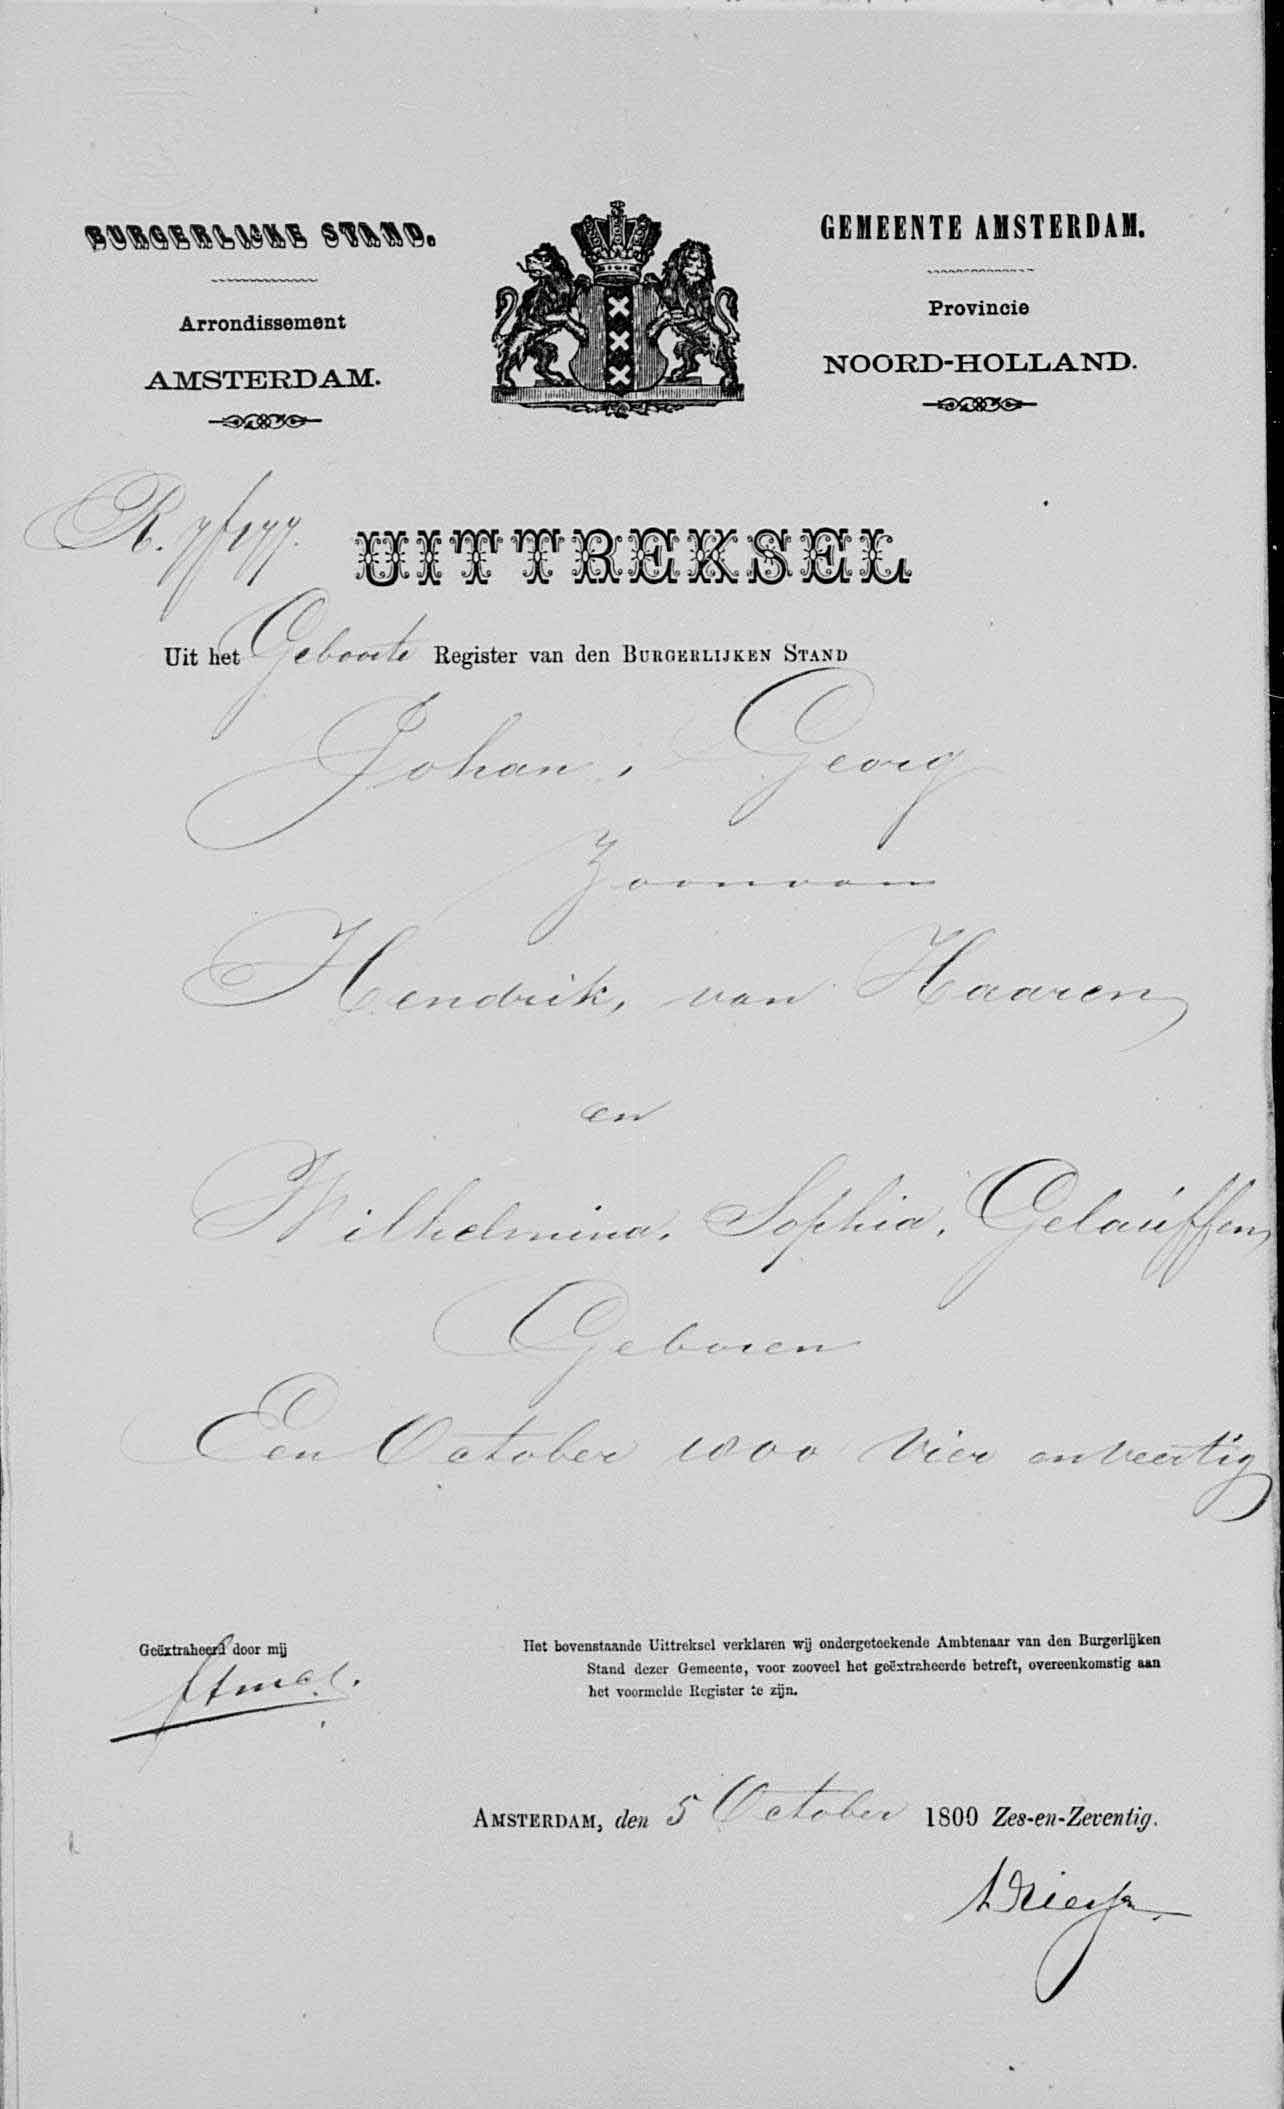 BURGERLIJKE STAND.
Arrondissement
AMSTERDAM.
GEMEENTE AMSTERDAM.
Provincie
NOORD-HOLLAND.
R. 7 f 177.
UITTREKSEL
Uit het Geboorte Register van den BURGERLIJKEN STAND
Johan, Georg
Zoon van
Hendrik, van Haaren
en
Wilhelmina, Sophia, Gelauffen
Geboren
Een October 1800 Vier en veertig
Geëxtraheerd door mij
Het bovenstaande Uittreksel verklaren wij ondergeteekende Ambtenaar van den Burgerlijken
Stand dezer Gemeente, voor zooveel het geëxtraheerde betreft, overeenkomstig aan
het voormelde Register te zijn.
AMSTERDAM, den 5 October 1800 Zes-en-Zeventig.